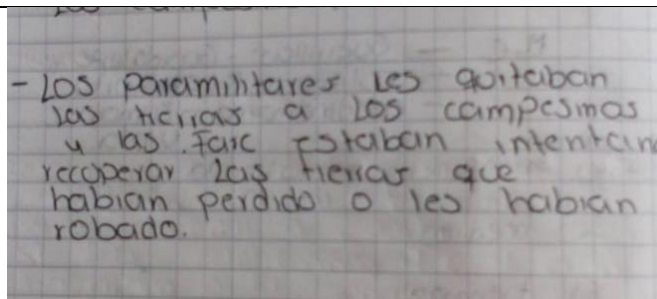 - Los paramilitares les quitaban
las tierras a los campesinos
y las Farc Estaban intentan
recuperar las tierras que
habian perdido o les habian
robado.